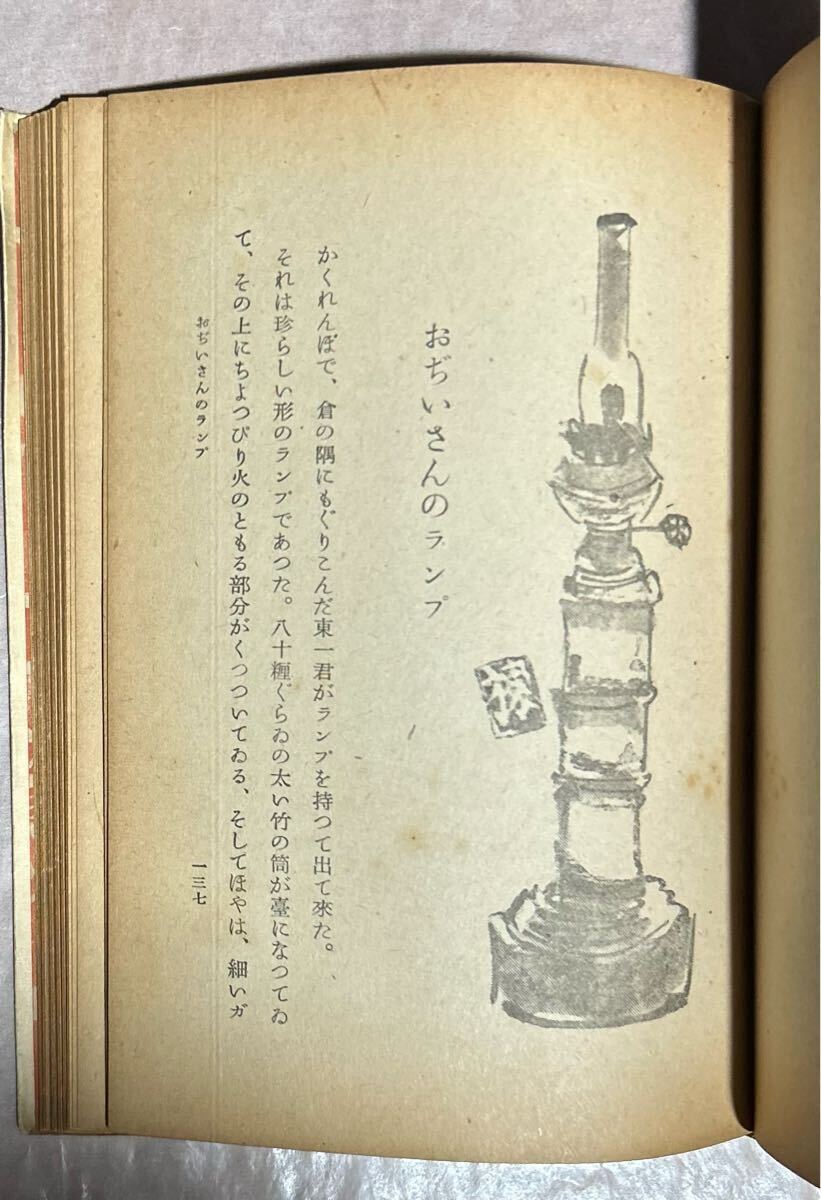 おぢいさんのランプ
かくれんぼで、倉の隅にもぐりこんだ東一君がランプを持つて出て來た。
それは珍らしい形のランプであつた。八十糎ぐらゐの太い竹の筒が臺になつてゐ
て、その上にちよつぴり火のともる部分がくつついてゐる、そしてほやは、細いガ
おぢいさんのランプ
一三七